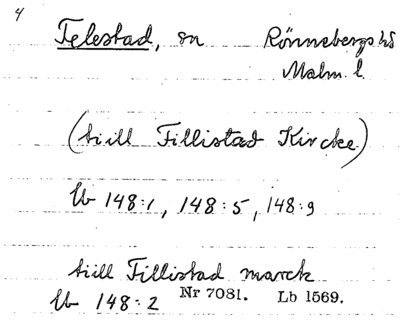 4
Telestad, sn Rönnebergs hd
Malm. l
(tiill Fillistad Kircke)
Lb 148:1, 148:5, 148:9
tiill Fillistad marck
Lb 148:2 Nr 7081. Lb 1569.